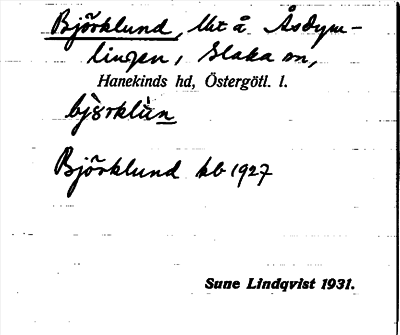 Björklund, lht å Åsdym-
lingen, Slaka sn,
Hanekinds hd, Östergötl. l.
bjö̀rklùn
Björklund kb 1927
Sune Lindqvist 1931.